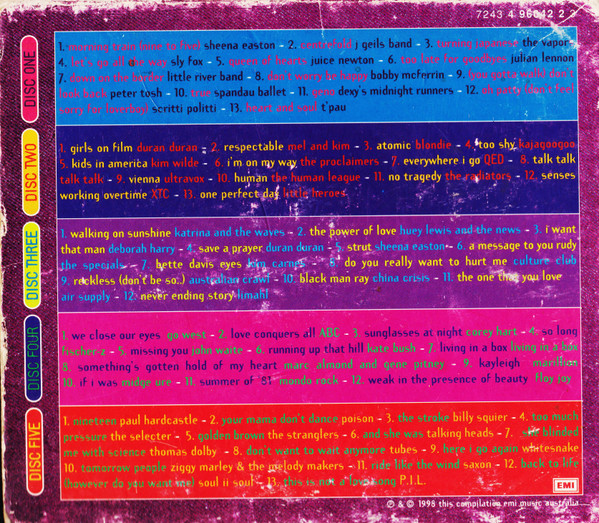 7243 4 96042 2 2
DISC ONE
1. morning train (nine to five) sheena easton - 2. centrefold j geils band - 3. turning japanese the vapors
4. let's go all the way sly fox - 5. queen of hearts juice newton - 6. too late for goodbyes julian lennon
7. down on the border little river band - 8. don't worry be happy bobby mcferrin - 9. (you gotta walk) don't
look back peter tosh - 10. true spandau ballet - 11. geno dexy's midnight runners - 12. oh patti (don't feel
sorry for loverboy) scritti politti - 13. heart and soul t'pau
DISC TWO
1. girls on film duran duran - 2. respectable mel and kim - 3. atomic blondie - 4. too shy kajagoogoo
5. kids in amerita kim wilde - 6. i'm on my way the proclaimers - 7. everywhere i go QED - 8. talk talk
talk talk - 9. vienna ultravox - 10. human the human league - 11. no tragedy the radiators - 12. senses
working overtime XTC - 13. one perfect day little heroes
DISC THREE
1. walking on sunshine katrina and the waves - 2. the power of love huey lewis and the news - 3. i want
that man deborah harry - 4. save a prayer duran duran - 5. strut sheena easton - 6. a message to you rudy
the specials - 7. bette davis eyes kim carnes - 8. do you really want to hurt me culture club
9. reckless (don't be so..) australian crawl - 10. black man ray china crisis - 11. the one that you love
air supply - 12. never ending story limahl
DISC FOUR
1. we close our eyes go west - 2. love conquers all ABC - 3. sunglasses at night corey hart - 4. so long
fischer-z - 5. missing you john waite - 6. running up that hill kate bush - 7. living in a box living in a box
8. something's gotten hold of my heart marc almond and gene pitney - 9. kayleigh marillion
10. if i was midge ure - 11. summer of '81 mondo rock - 12. weak in the presence of beauty floy joy
DISC FIVE
1. nineteen paul hardcastle - 2. your mama don't dance poison - 3. the stroke billy squier - 4. too much
pressure the selecter - 5. golden brown the stranglers - 6. and she was talking heads - 7. she blinded
me with science thomas dolby - 8. don't want to wait anymore tubes - 9. here i go again whitesnake
10. tomorrow people ziggy marley & the melody makers - 11. ride like the wind saxon - 12. back to life
(however do you want me) soul ii soul - 13. this is not a love song P.I.L.
EMI
℗ & © 1998 this compilation emi music australia